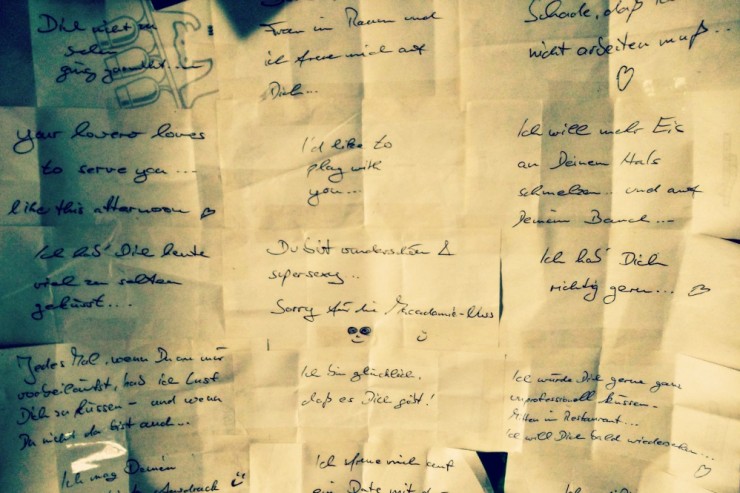 Frau im Raum und
ich freue mich auf
Dich...
Schade, daß
nicht arbeiten muß...
your lovero loves
to serve you ...
like this afternoon
I'd like to
play with
you...
Ich will mehr Eis
an Deinem Hals
schmelzen.. und auf
Deinem Bauch...
Ich hab' Dich heute
viel zu selten
geküsst...
Du bist wunderschön &
supersexy..
Sorry für die Macadamia-Nuss
Ich hab' Dich
richtig gern...
Jedes Mal, wenn Du an mir
vorbeiläufst, hab ich Lust
Dich zu küssen - und wenn
Du nicht da bist auch...
Ich bin glücklich,
daß es Dich gibt!
Ich würde Dich gerne ganz
unprofessionell küssen -
Mitten im Restaurant...
Ich will Dich bald wiedersehen...
Ich mag Deinen
Ausdruck
Ich freue mich auf
ein Date mit